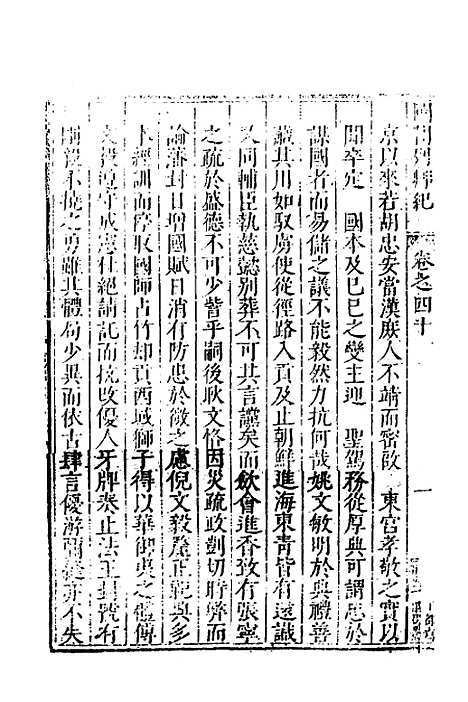 卷之四十 一
京以來若胡忠安當漢庶人不靖而密啟 東宮孝敬之實以
聞卒定 國本及巳巳之變主迎 聖駕務從厚典可謂忠於
謀國者而易儲之議不能毅然力抗何哉姚文敏明於典禮善
識其川如馭虜使從徑路入貢及止朝鮮進海東青皆有遠識
又同輔臣執慈懿別葬不可其言讜矣而飲會進香致有張寧
之疏於盛德不可少訾乎嗣後耿文恪因災疏政剴切時弊而
論藩封日增國賦日消有防患於微之慮倪文毅釐正祀典多
本經訓而停取國師占竹却貢西域獅子得以華御夷之體傅
文毅 守成憲杜絕請託而抗改優人牙牌奏止法王 號有
不撓之勇雖其體局少異而依古肆言優游 亦不失